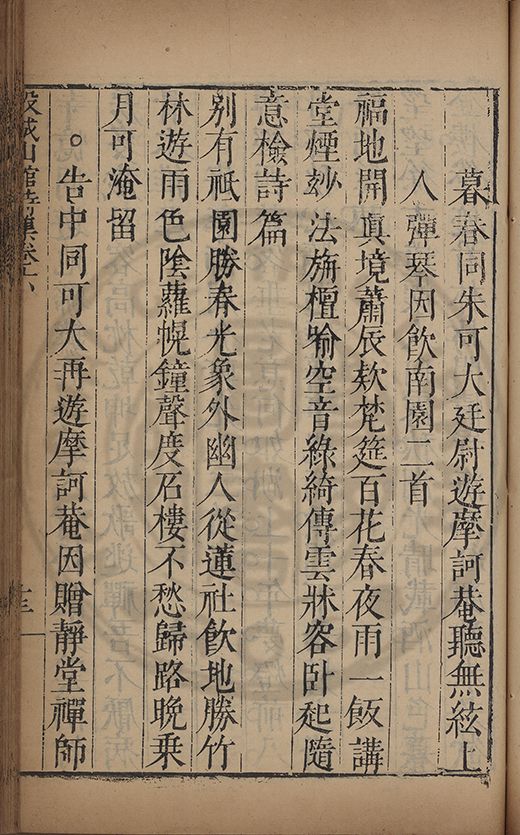 暮春同朱可大廷尉遊摩訶菴聽無絃上
人彈琴因飲南園二首
福地開真境蕭辰欵梵筵百花春夜雨一飯講
堂煙玅法旃檀喻空音綠綺傳雲牀容卧起隨
意檢詩篇
别有祇園勝春光象外幽人從蓮社飲地勝竹
林遊雨色陰蘿幌鐘聲度石樓不愁歸路晚乗
月可淹留
。告中同可大再遊摩訶菴因贈靜堂禪師
穀城山館詩集卷十八
十三